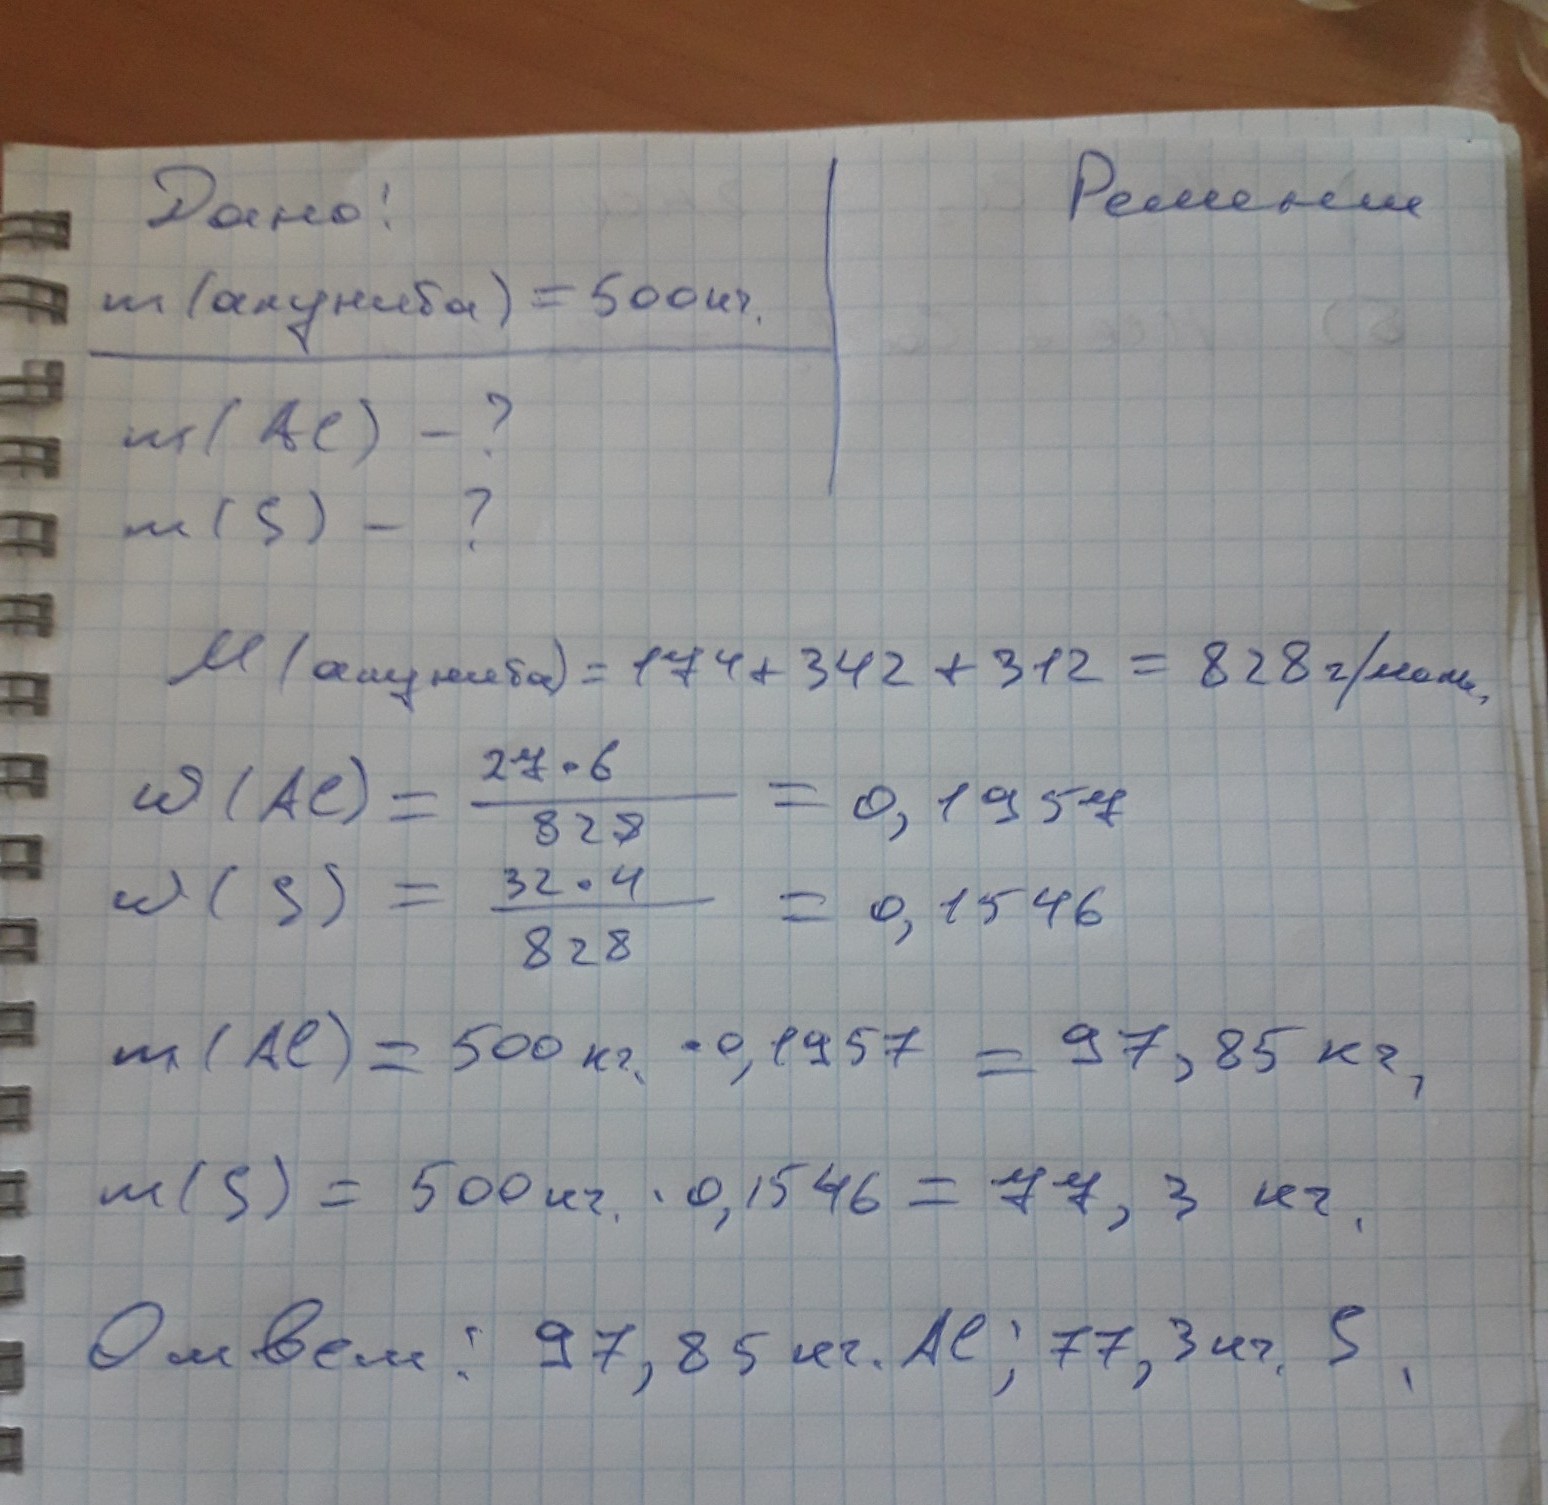 Дано:
Решение
m(алунита) = 500кг.
m(Al) - ?
m(S) - ?
M(алунита) = 174 + 342 + 312 = 828 г/моль.
ω(Al) = 27·6/828 = 0,1957
ω(S) = 32·4/828 = 0,1546
m(Al) = 500 кг. · 0,1957 = 97,85 кг,
m(S) = 500 кг. · 0,1546 = 77,3 кг.
Ответ: 97,85 кг. Al; 77,3 кг. S.